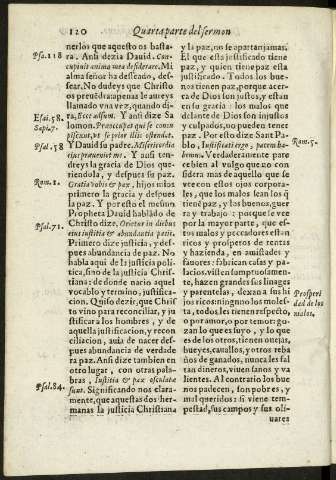 120 Quarta parte del sermon
nerlos que aquesto os basta-
ra. Ansi dezia Dauid. Con-
cupiuit anima mea desiderare. Mi
alma señor ha desseado, des-
sear. No dudeys que Christo
os preuedra apenas le aureys
llamado vna vez, quando di-
ra, Ecce assum. Y ansi dize Sa
lomon. Præoccupat qui se concu
piscunt, vt se prior illis ostendat.
Y Dauid su padre. Misericordia
eius præueniet me. Y ansi ten-
dreys la gracia de Dios que-
riendola, y despues su paz.
Gratia vobis & pax, hijos mios
primero la gracia y despues
la paz. Y por esto el mesmo
Propheta Dauid hablādo de
Christo dize. Orietur in diebus
eius iustitia & abundantia pacis.
Primero dize justicia, y des-
pues abundancia de paz. No
habla aqui de la justicia poli-
tica, sino de la justicia Chris-
tiana: de donde nacio aquel
vocablo y termino, justifica-
cion. Quiso dezir, que Christ
to vino para reconciliar, y ju
stificar a los hombres, y de
aquella justificacion, y recon
ciliacion, auia de nacer des-
pues abundancia de verdade
ra paz. Ansi dize tambien en
otro lugar, con otras pala-
bras, Iustitia & pax osculatæ
sunt. Significando nos clara-
mente, que aquestas dos her-
manas la justicia Christiana
Psa. 118
Esai. 58.
Sapi. 7.
Psal. 58
Rom. 1.
Psal. 71.
Psal. 84.
y la paz, no se apartan jamas.
El que esta justificado tiene
paz, y quien tiene paz esta
justificado. Todos los bue-
nos tienen paz, porque acer-
ca de Dios son justos, y estan
en su gracia: los malos que
delante de Dios son injustos
y culpados, no pueden tener
paz. Por esto dize Sant Pa-
blo, Iustificati ergo, pacem ha-
bemus. Verdaderamente pare
ce bien al vulgo no conside-
rando sino lo exterior corpo
ral, que los malos sean los q̄
tienē paz, y los buenos, guer
ra y trabajo: porque le vee
por la mayor parte, que es-
tos malos y peccadores estan
ricos y prosperos de rentas
y hazienda, en amistades y
fauores: fabrican casas y pa-
lacios, visten sumptuosamen-
te, hazen grandes sus linages
y parentelas, dexan a sus hi
jos ricos: ninguno los moles-
ta, todos les tienen respecto,
o por amor, o por temor: go-
zan lo que es suyo, y lo que
es de los otros, tienen ouejas,
bueyes, cauallos, y otros reba
ños de ganados, nunca les fal
tan dineros, viuen sanos y va
lientes. Al contrario los bue
nos padecen, son pobres, y
mal queridos: si viene tem-
pestad, sus campos y sus oli-
uares
Rom. 5.
Prosperi
dad de los
malos.